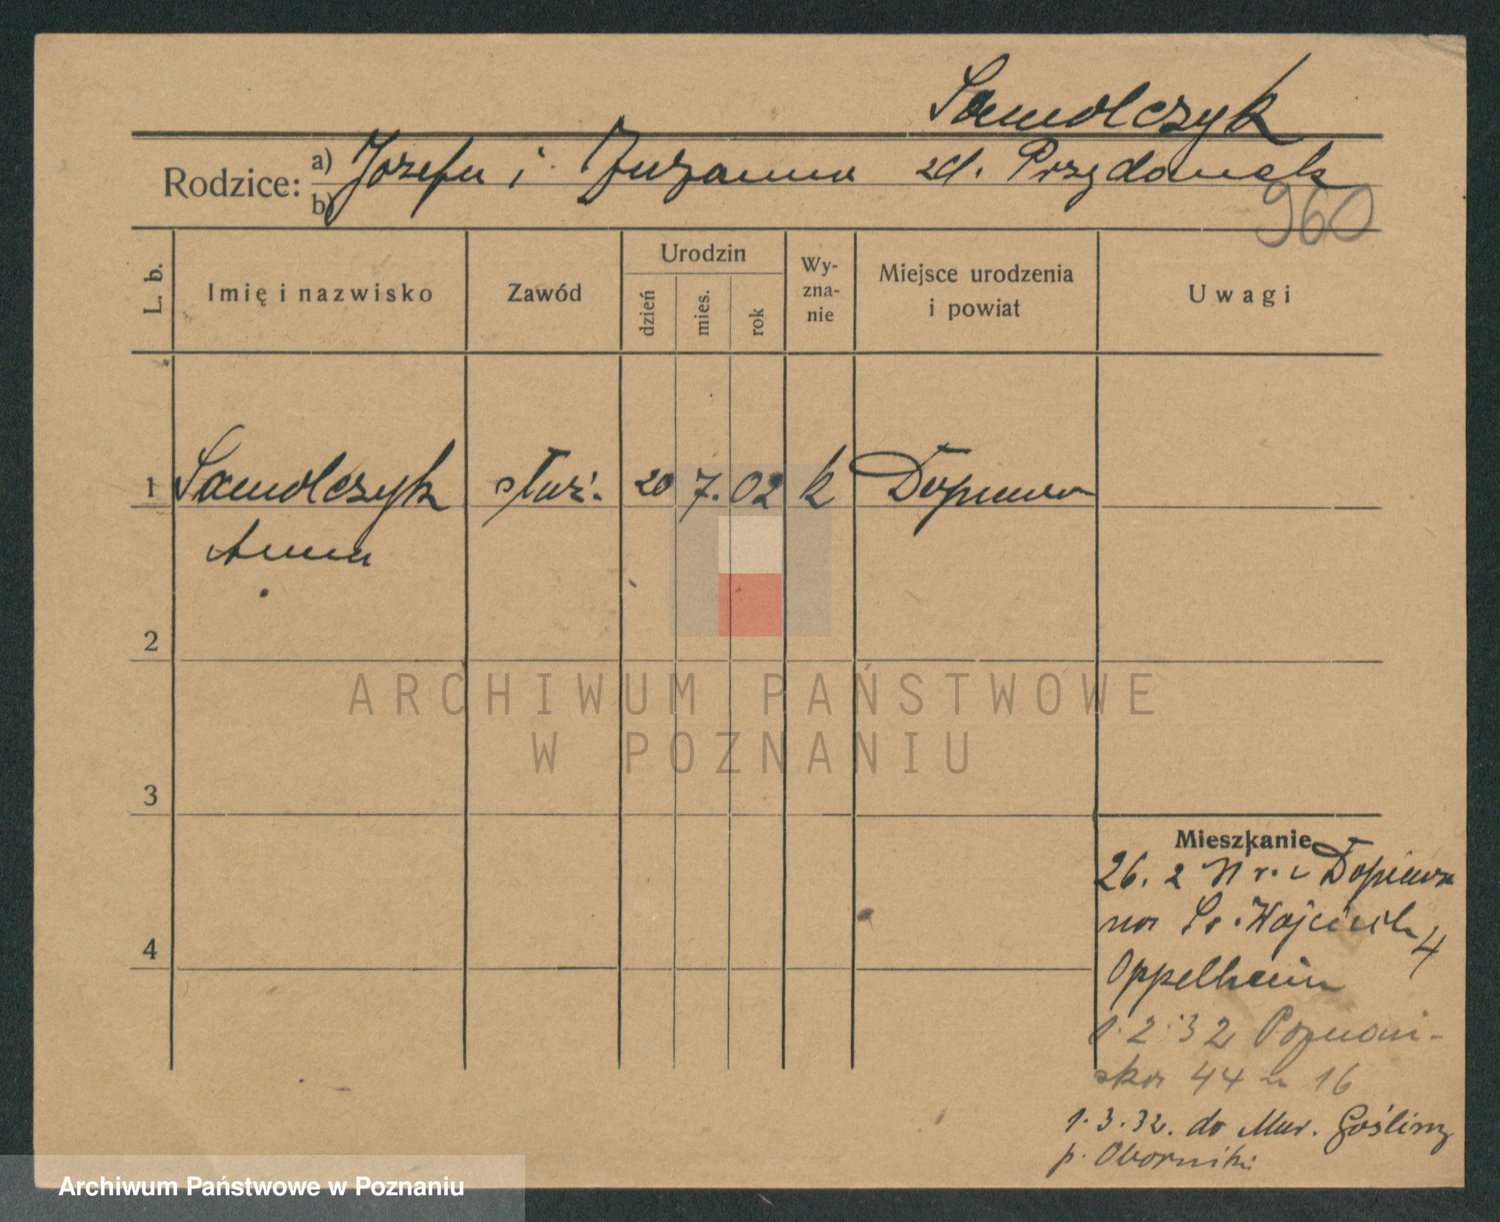 Samolczyk
Rodzice: a) Józefa i Zuzanna zd. Przydanek
b)
960
L. b. Imię i nazwisko Zawód Urodzin dzień mies. rok Wy-zna-nie Miejsce urodzenia i powiat Uwagi
1 Samolczyk służ. 20 7. 02 k Dopiewo
Anna
2
ARCHIWUM PAŃSTWOWE
W POZNANIU
3
Mieszkanie
26. 2 Dopiewa
na Św. Wojciech 4
Oppelheim
1.2.32 Poznań-
ska 44 16
1.3.32. do Mur. Gośliny
p. Oborniki
4
Archiwum Państwowe w Poznaniu